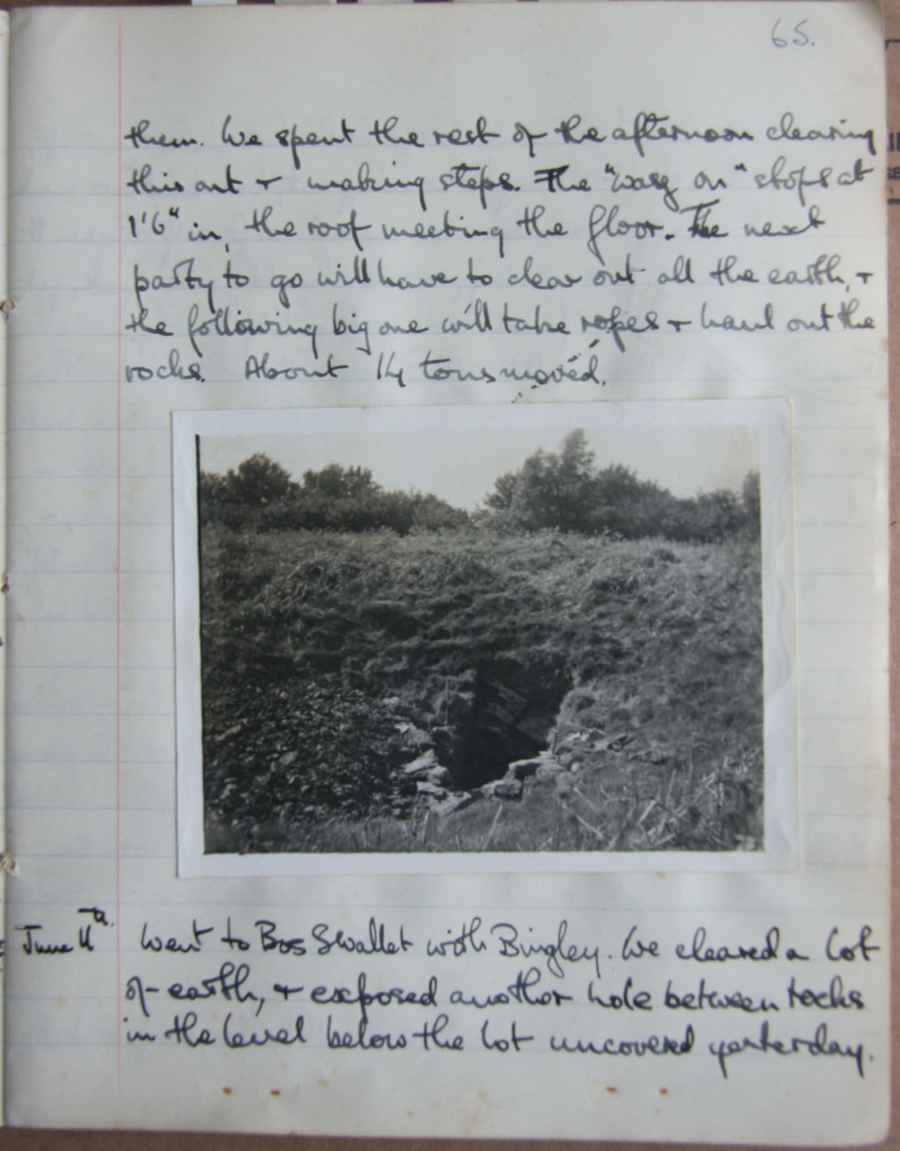 65.
them. We spent the rest of the afternoon clearing
this out + making steps. The "way on" stops at
1'6" in, the roof meeting the floor. The next
party to go will have to clear out all the earth, +
the following big one will take ropes + haul out the
rocks. About 1¼ tons moved.
June 11th. Went to Bos Swallet with Bingley. We cleared a lot
of earth, + exposed another hole between rocks
in the level below the lot uncovered yesterday.